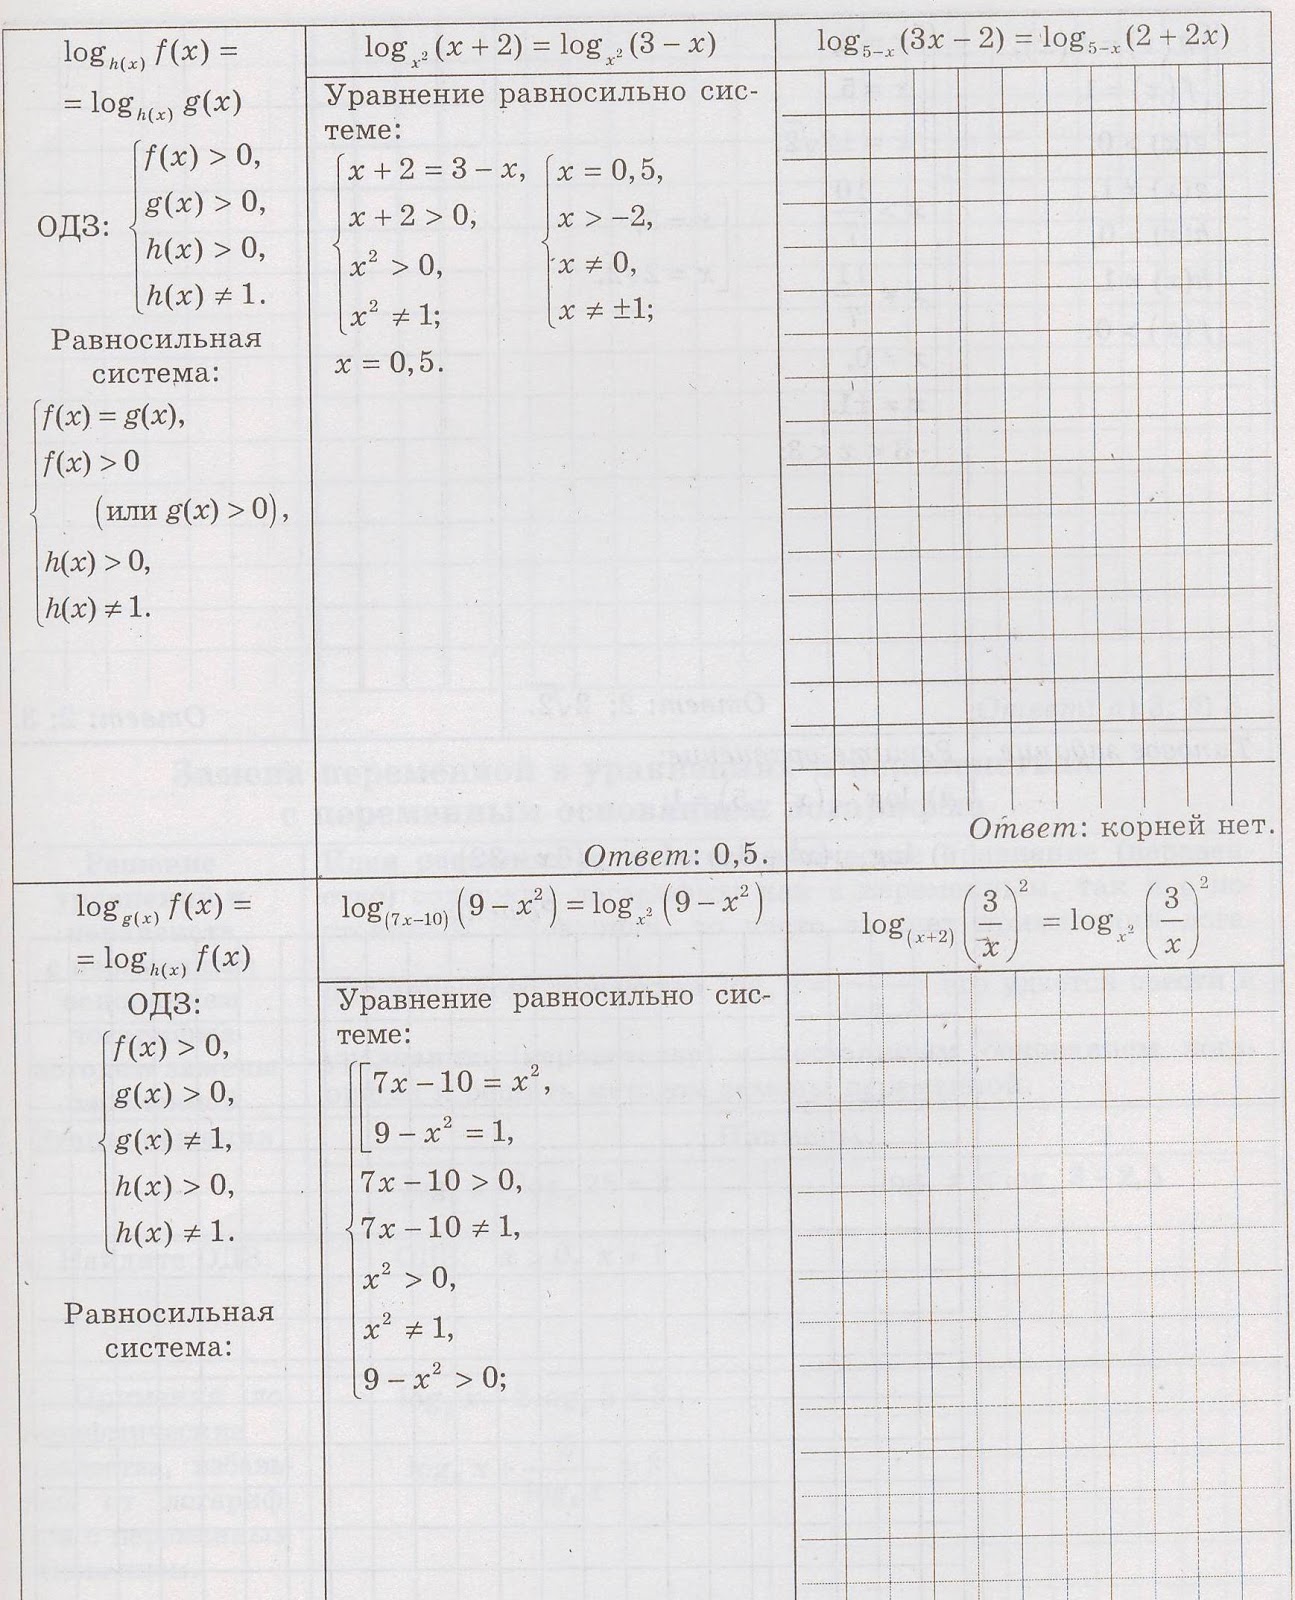 log_{h(x)} f(x) =
= log_{h(x)} g(x)
ОДЗ: { f(x) > 0,
g(x) > 0,
h(x) > 0,
h(x) ≠ 1.
Равносильная
система:
{ f(x) = g(x),
f(x) > 0
(или g(x) > 0),
h(x) > 0,
h(x) ≠ 1.
log_{x²} (x + 2) = log_{x²} (3 − x)
Уравнение равносильно сис-
теме:
{ x + 2 = 3 − x, { x = 0,5,
x + 2 > 0, x > −2,
x² > 0, x ≠ 0,
x² ≠ 1; x ≠ ±1;
x = 0,5.
Ответ: 0,5.
log_{5−x} (3x − 2) = log_{5−x} (2 + 2x)
Ответ: корней нет.
log_{g(x)} f(x) =
= log_{h(x)} f(x)
ОДЗ:
{ f(x) > 0,
g(x) > 0,
g(x) ≠ 1,
h(x) > 0,
h(x) ≠ 1.
Равносильная
система:
log_{(7x−10)} (9 − x²) = log_{x²} (9 − x²)
Уравнение равносильно сис-
теме:
{ [ 7x − 10 = x²,
9 − x² = 1,
7x − 10 > 0,
7x − 10 ≠ 1,
x² > 0,
x² ≠ 1,
9 − x² > 0;
log_{(x+2)} (3/x)² = log_{x²} (3/x)²